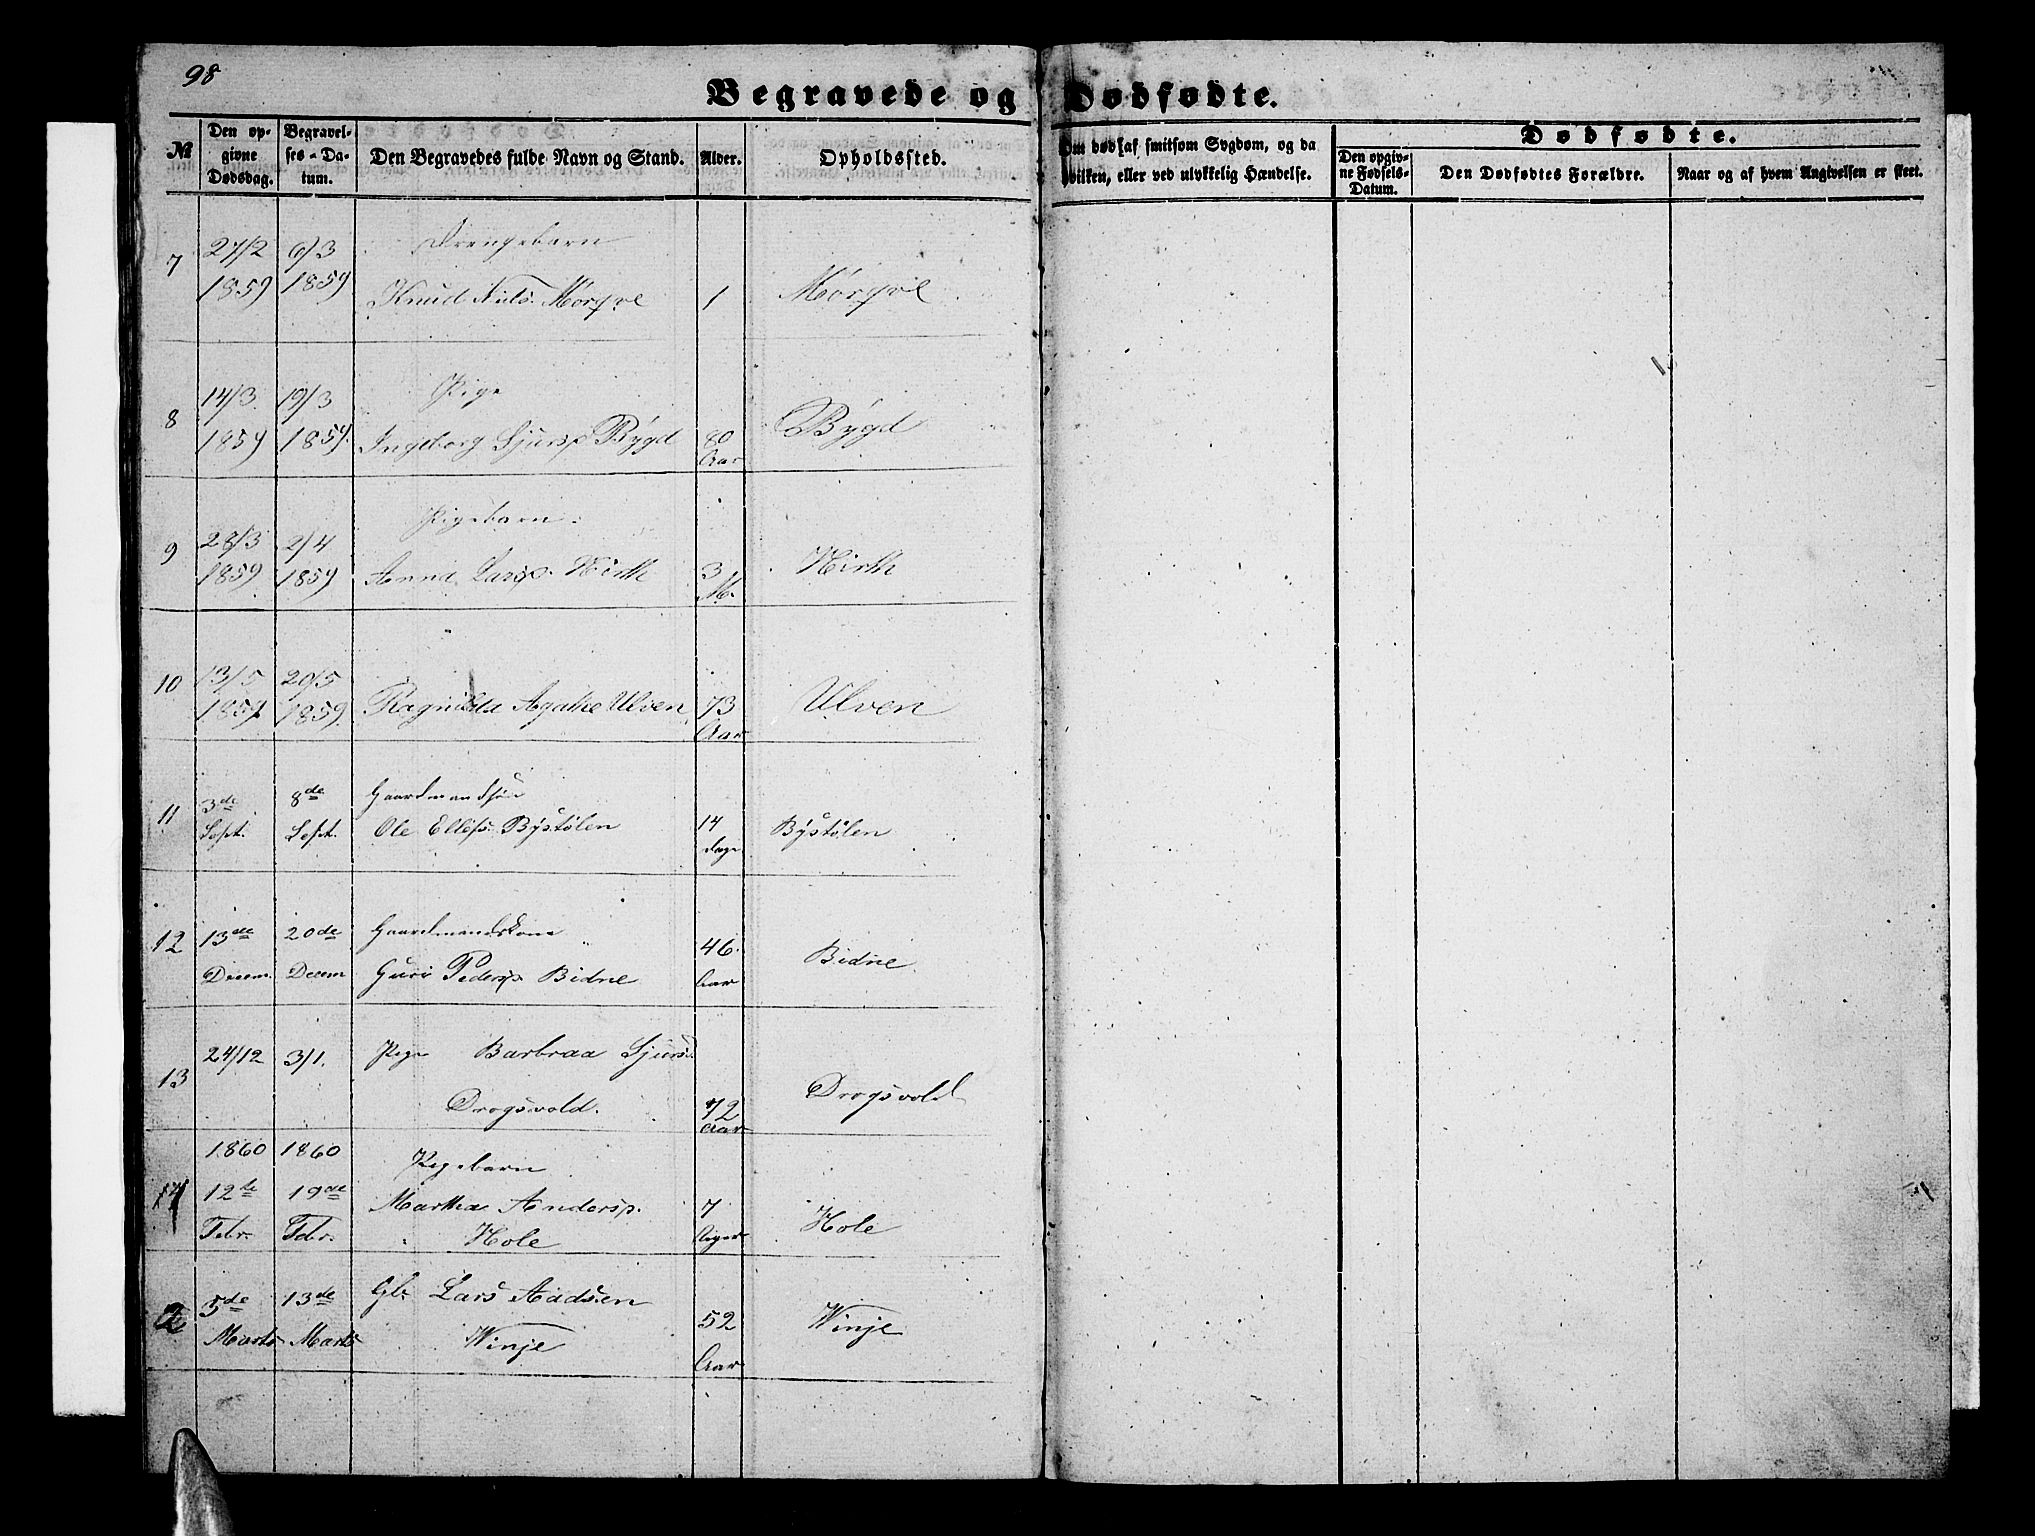 98
Begravede og Dødfødte.
№
Den op-
givne
Dødsdag.
Begravel-
ses-Da-
tum.
Den Begravedes fulde Navn og Stand.
Alder.
Opholdssted.
Om død af smitsom Sygdom, og da
hvilken, eller ved ulykkelig Hændelse.
Dødfødte.
Den opgiv-
ne Fødsels-
Datum.
Den Dødfødtes Forældre.
Naar og af hvem Angivelsen er skeet.
7 27/2 1859 6/3 1859 Drengebarn
Knud Nils. Mørqve 1 Mørqve
8 14/3 1859 19/3 1859. Pige
Ingeborg Sjursp Bÿgd 80 Aar Bÿgd
9 28/3 1859 2/4 1859 Pigebarn.
Anna Larsp. Hirth 3 M. Hirth
10 13/5 1859 20/5 1859. Ragnilda Agathe Ulven 73 Aar Ulven
11 3de Sept. 8de Sept. Gaardmandsøn
Ole Ellefs. Bÿstølen 14 Dage Bÿstølen
12 13de Decem. 20de Decem Gaardmandskone
Guri Pedersp Bidne 46. Aar Bidne
13 24/12 3/1. Pige Barbraa Sjursd
Drogsvold. 72 Aar Drogsvold
1860 1860 Pigebarn
1 12te Febr. 19de Febr. Martha Andersp.
Hole 7 Uger Hole
2 5de Marts 13de Marts Gbr Lars Aadsen
Winje 52 Aar Winje